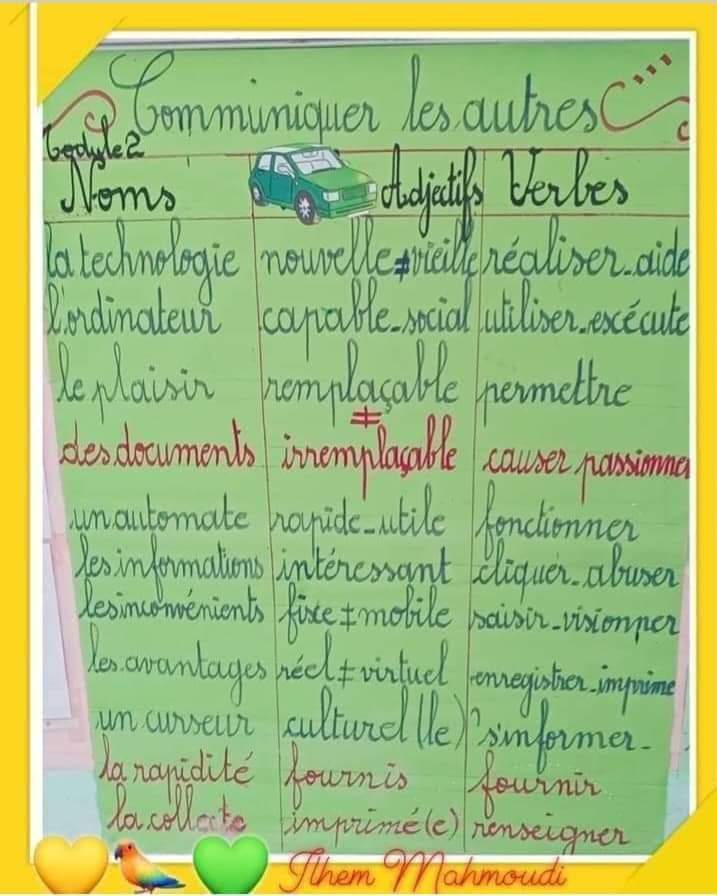 Communiquer les autres
Module 2
Noms Adjectifs Verbes
la technologie nouvelle≠vieille réaliser-aide
l'ordinateur capable-social utiliser-escécute
le plaisir remplaçable permettre
≠
des documents irremplaçable causer passionner
un automate rapide-utile fonctionner
les informations intéressant cliquer-abuser
les inconvénients fixe≠mobile saisir-visionner
les avantages réel≠virtuel enregistrer-imprime
un curseur culturel(le) s'informer-
la rapidité fournis fournir
la collecte imprimé(e) renseigner
Ilhem Mahmoudi